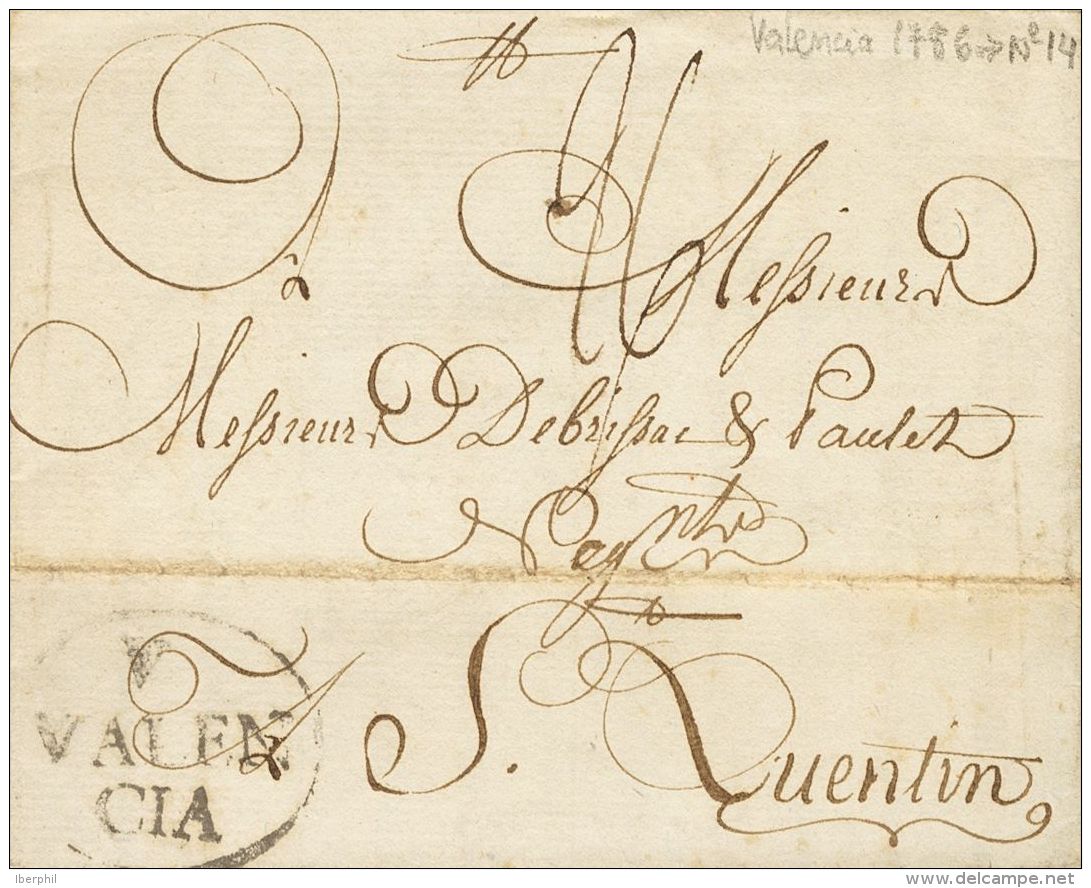 Valencia 1786 → Nº 14
A Messieurs
Messieurs Debrissac & Paulet
Negnts
A S. Quentin
VALEN
CIA
Iberphil
delcampe.net